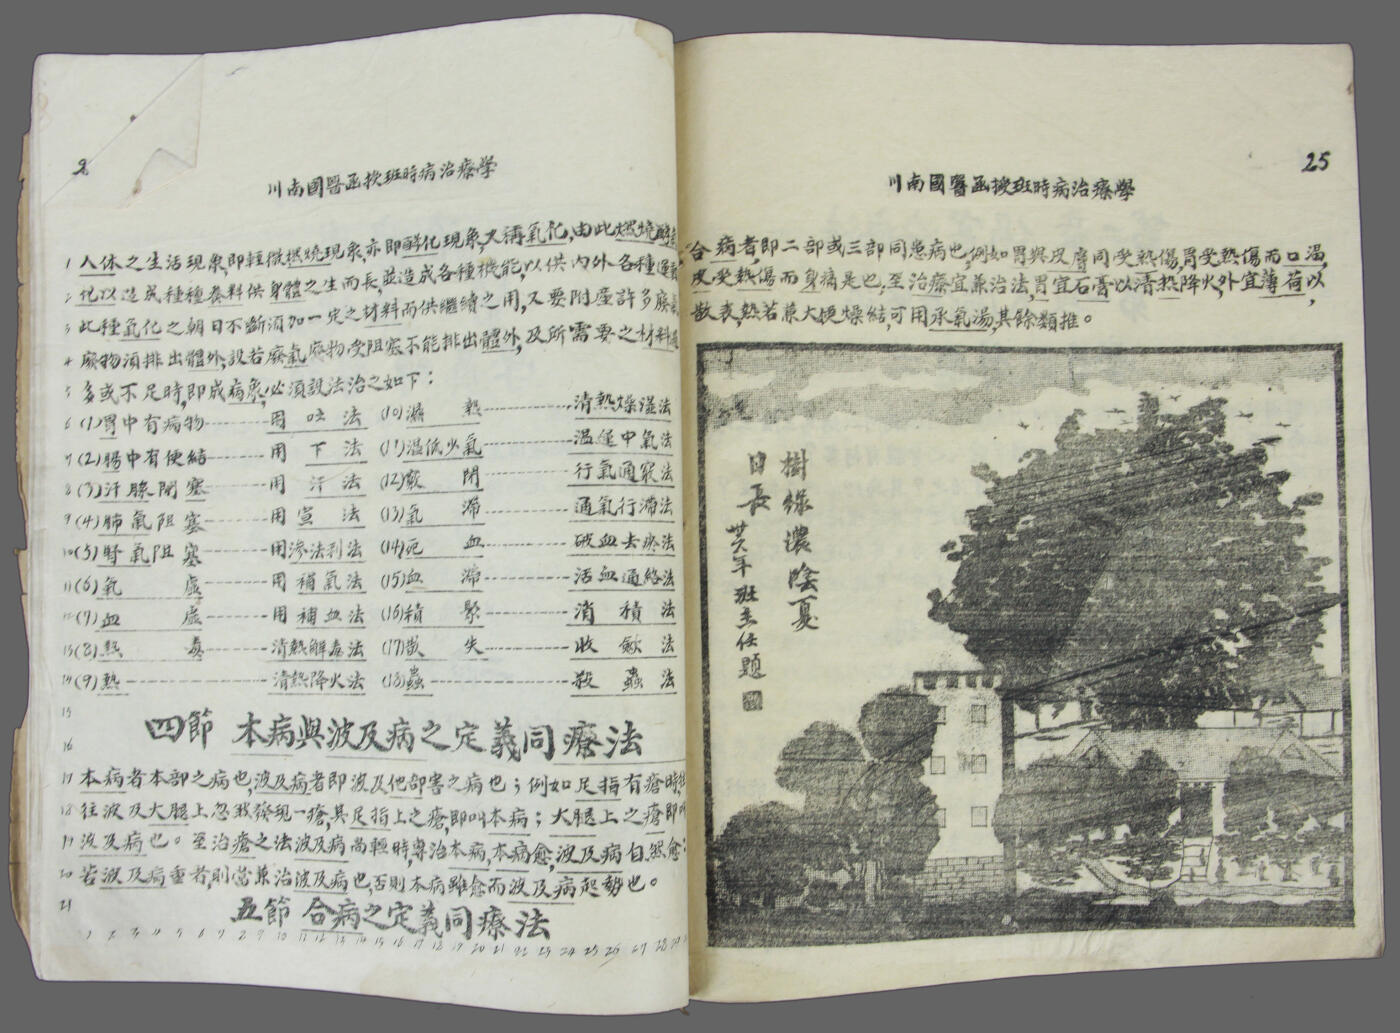 2
川南國醫函授班時病治療學
1 人体之生活現象,即輕微燃燒現象亦即酵化現象,又稱氧化,由此燃燒酵
2 化以造成種種養料供身體之生而長並造成各種機能,以供內外各種運動
3 此種氧化之朝日不斷須加一定之材料而供繼續之用,又要附產許多廢氣
4 廢物須排出體外,設若廢氣廢物受阻塞不能排出體外,及所需要之材料過
5 多或不足時,即成病象,必須設法治之如下:
6 (1)胃中有病物------用吐法 (10)濕熱------清熱燥濕法
7 (2)腸中有便結------用下法 (11)温低少氣------温運中氣法
8 (3)汗腺閉塞------用汗法 (12)竅閉------行氣通竅法
9 (4)肺氣阻塞------用宣法 (13)氣滯------通氣行滯法
10 (5)腎氣阻塞------用滲法利法 (14)死血------破血去瘀法
11 (6)氣虛------用補氣法 (15)血滯------活血通絡法
12 (7)血虛------用補血法 (16)積聚------消積法
13 (8)熱毒------清熱解毒法 (17)散失------收斂法
14 (9)熱------清熱降火法 (18)蟲------殺蟲法
15
16 四節 本病與波及病之定義同療法
17 本病者本部之病也,波及病者即波及他部害之病也;例如足指有瘡時,往
18 往波及大腿上忽我發現一瘡,其足指上之瘡,即叫本病;大腿上之瘡即叫
19 波及病也。至治瘡之法波及病尚輕時,專治本病,本病愈,波及病自然愈;
20 若波及病重者,則當兼治波及病也,否則本病雖愈而波及病起勢也。
21 五節 合病之定義同療法
1 2 3 4 5 6 7 8 9 10 11 12 13 14 15 16 17 18 19 20 21 22 23 24 25 26 27 28 29
25
川南國醫函授班時病治療學
合病者,即二部或三部同患病也,例如胃與皮膚同受熱傷,胃受熱傷而口温,
皮受熱傷而身痛是也,至治療宜兼治法,胃宜石膏以清熱降火,外宜薄荷以
散表,熱若兼大便燥結,可用承氣湯,其餘類推。
樹綠濃陰夏
日長
卅六年班主任題